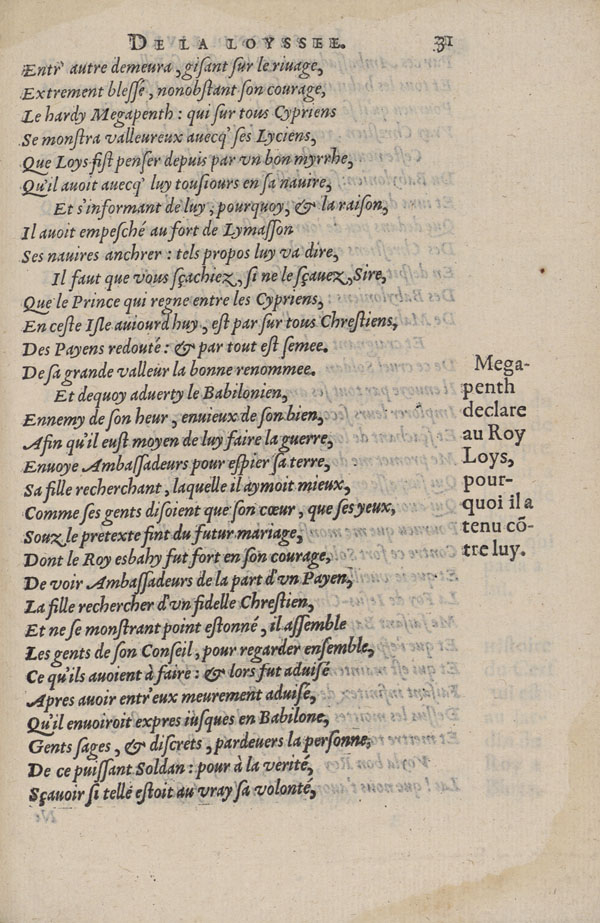 DE LA LOYSSEE. 31
Entr' autre demeura, gisant sur le riuage,
Extrement blessé, nonobstant son courage,
Le hardy Megapenth : qui sur tous Cypriens
Se monstra valleureux auecq' ses Lyciens,
Que Loys fist penser depuis par vn bon myrrhe,
Qu'il auoit auecq' luy tousiours en sa nauire,
Et s'informant de luy, pourquoy, & la raison,
Il auoit empesché au fort de Lymasson
Ses nauires anchrer : tels propos luy va dire,
Il faut que vous sçachiez, si ne le sçauez, Sire,
Que le Prince qui regne entre les Cypriens,
En ceste Isle auiourd'huy, est par sur tous Chrestiens,
Des Payens redouté : & par tout est semee.
De sa grande valleur la bonne renommee.
Et dequoy aduerty le Babilonien,
Ennemy de son heur, enuieux de son bien,
Afin qu'il eust moyen de luy faire la guerre,
Enuoye Ambassadeurs pour espier sa terre,
Sa fille recherchant, laquelle il aymoit mieux,
Comme ses gents disoient que son cœur, que ses yeux,
Souz le pretexte fint du futur mariage,
Dont le Roy esbahy fut fort en son courage,
De voir Ambassadeurs de la part d'vn Payen,
La fille rechercher d'vn fidelle Chrestien,
Et ne se monstrant point estonné, il assemble
Les gents de son Conseil, pour regarder ensemble,
Ce qu'ils auoient à faire : & lors fut aduisé
Apres auoir entr'eux meurement aduisé,
Qu'il enuoiroit expres iusques en Babilone,
Gents sages, & discrets, pardeuers la personne,
De ce puissant Soldan : pour à la verité,
Sçauoir si telle estoit au vray sa volonté,
Mega-
penth
declare
au Roy
Loys,
pour-
quoi il a
tenu cõ-
tre luy.